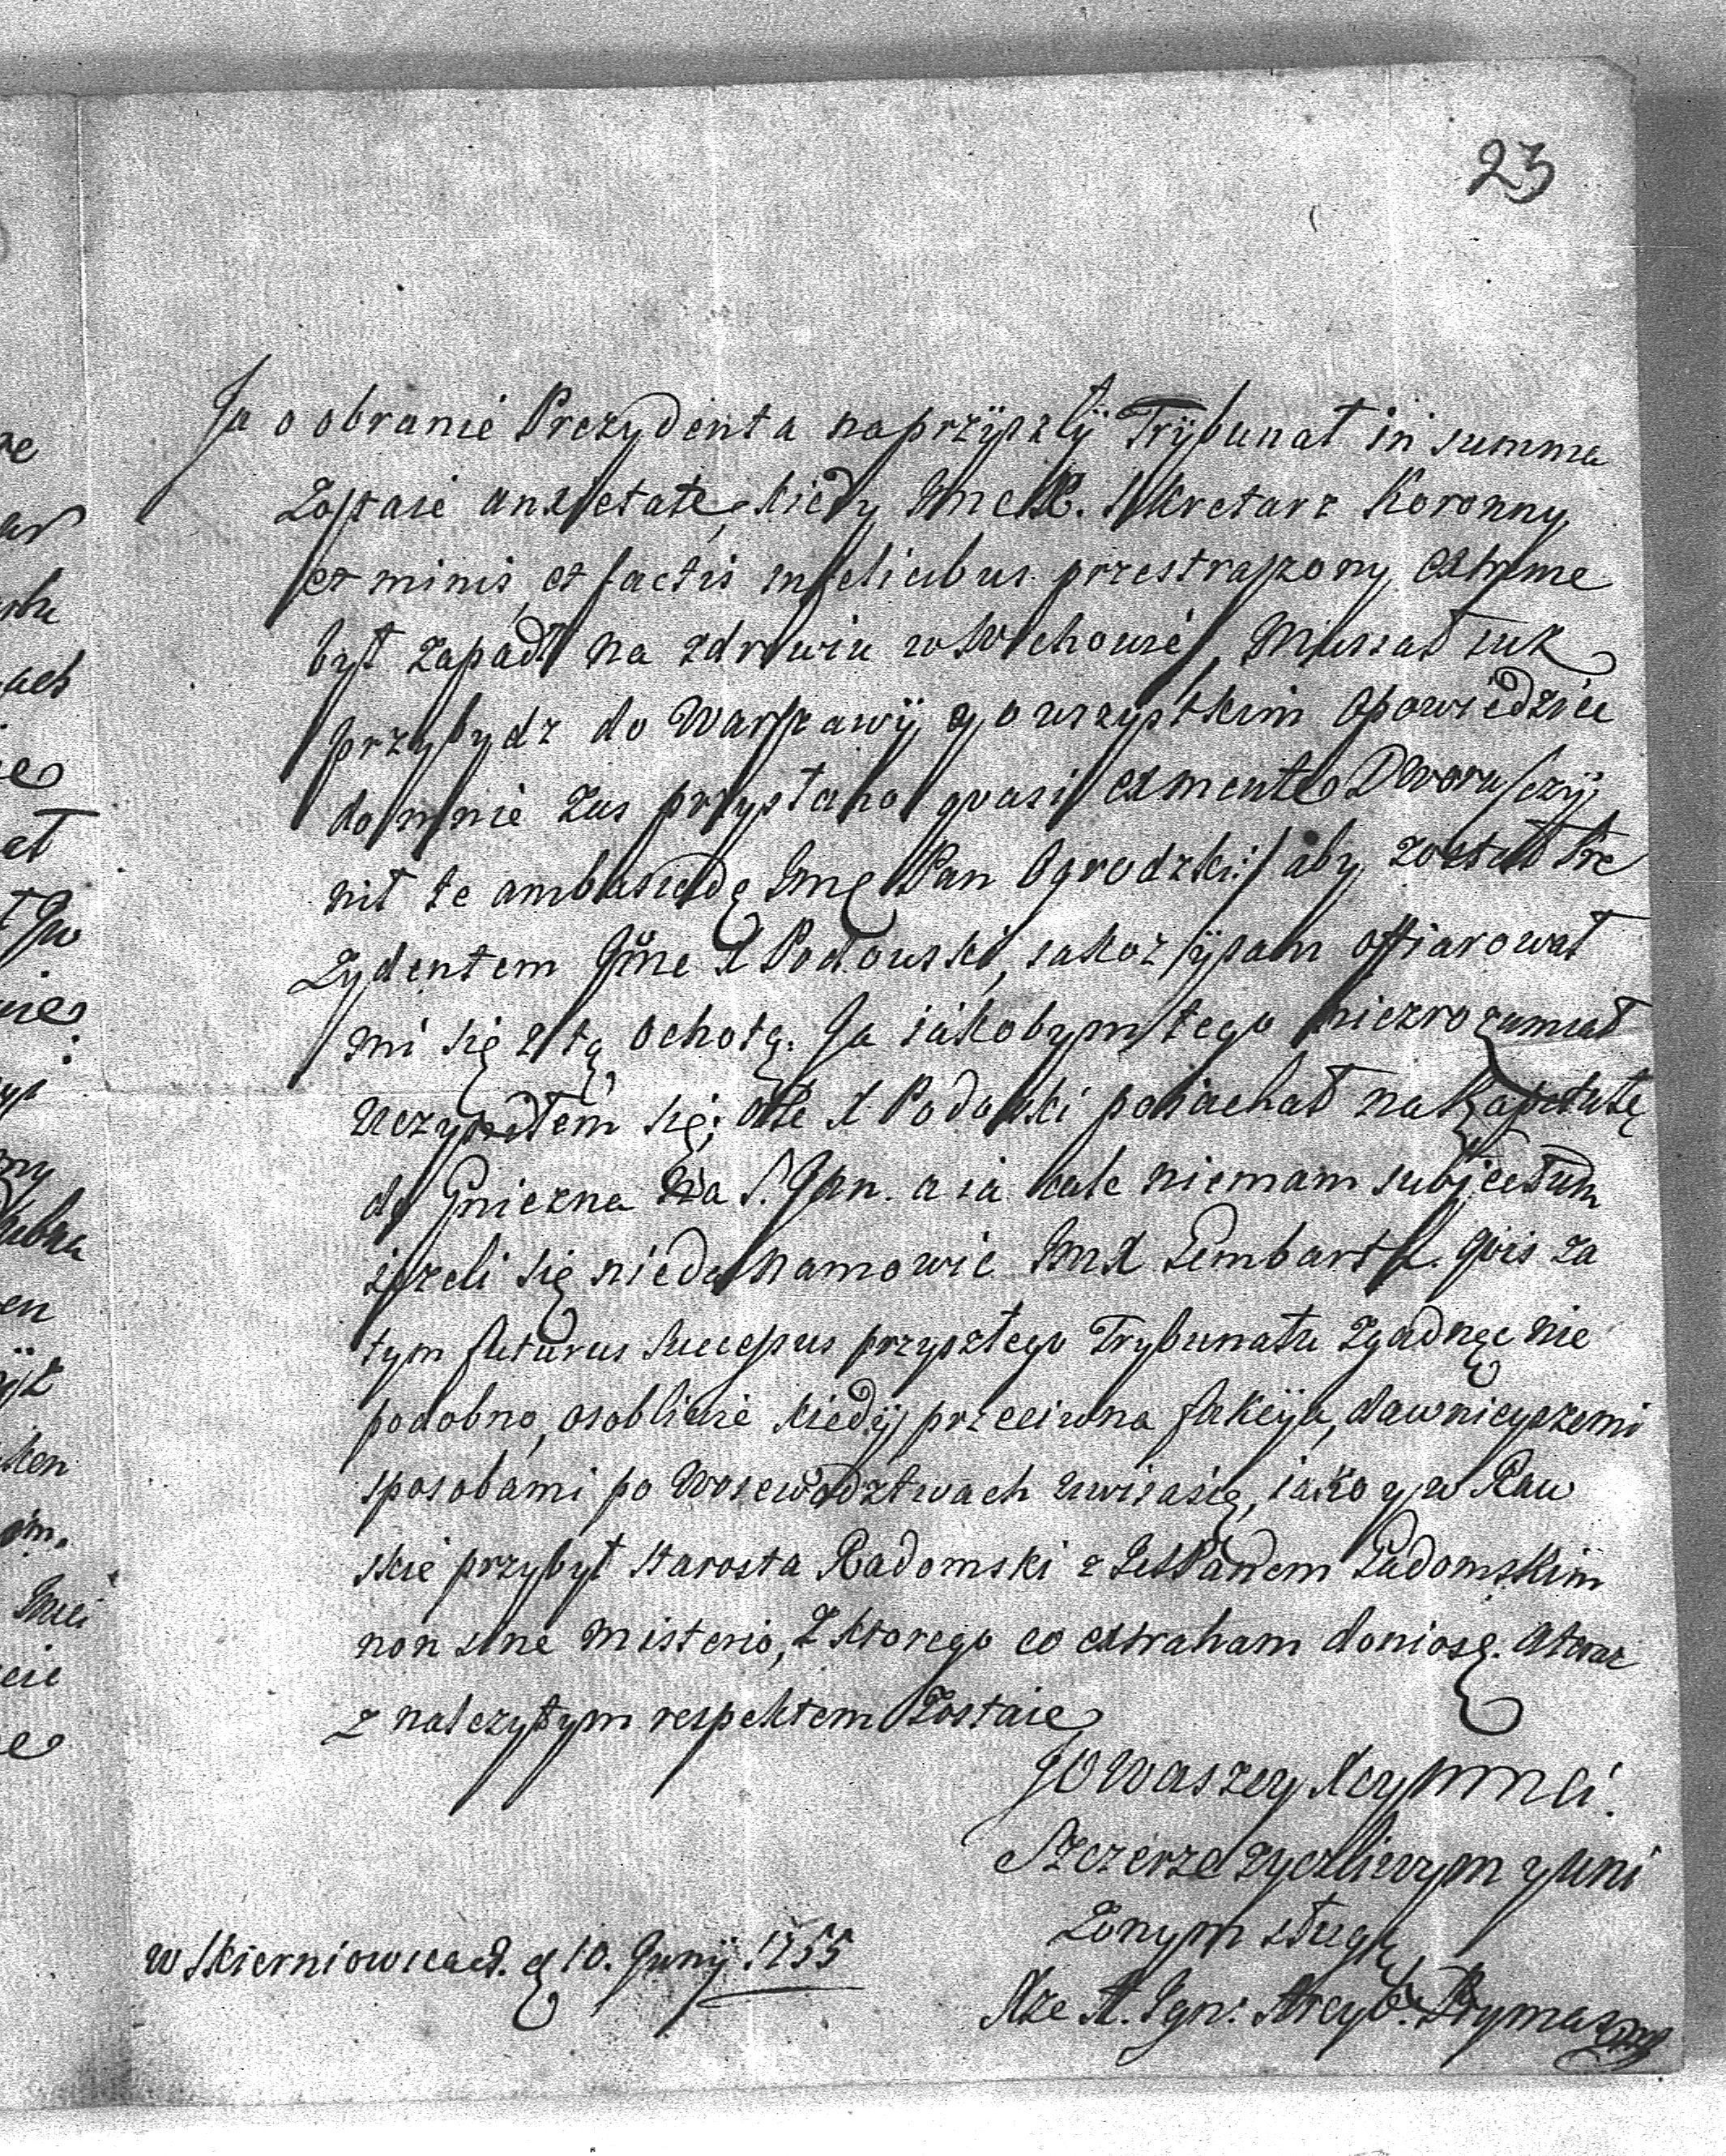 23
Ja o obranie Prezydenta na przÿszłÿ Trÿbunał in summa
Zostaie anxietate, kiedy Jmć X. Sekretarz Koronny
et minis et factis infelicibus przestraszony, extreme
był zapadł na zdrowiu w Wschowie, Mussiał tuk
przybydz do Warszawÿ, y o wszystkim opowiedziec
do mnie zas przysłano quasi ex mente Dworu /czÿ,
nił te ambassiadę Jmę Pan Ogrodzki:/ aby został Pre
zydentem Jme X Podoski, iakoż ÿ sam offiarował
mi się z tą ochotą. Ja iakobym tego niezrozumiał
uczyniłem się; ale X Podoski poiachał na Kapitułę
do Gniezna na S. Jan. a ia cale niemam subjectum
ieżeli się nieda namowic JmX Lembart
tym futurus Successus przyszłego Trybunału zgadnąc nie
podobno, osobliwie kiedÿ przeciwna fakcÿa, dawnieyszemi
sposobami po Woiewodztwach uwiia się, iako y w Raw
skie przybył starosta Radomski z Panem Ludomskim
non sine misterio, z ktorego co extraham doniosę. A teraz
z należytym respektem Zostaie
JO Waszey Xcymci.
Szczerze zyczliwym y uni
żonym sługą
Xże A. Ign: Arcyb. Prymas
w Skierniewicach. d 10. Junÿ 1755